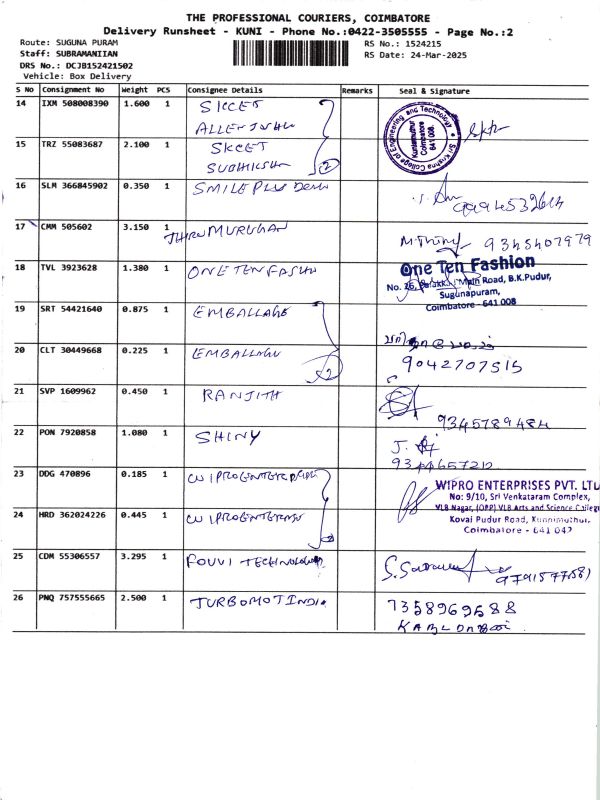 THE PROFESSIONAL COURIERS, COIMBATORE
Delivery Runsheet - KUNI - Phone No.:0422-3505555 - Page No.:2
Route: SUGUNA PURAM
Staff: SUBRAMANIIAN
DRS No.: DCJB152421502
Vehicle: Box Delivery
RS No.: 1524215
RS Date: 24-Mar-2025
S No Consignment No Weight PCS Consignee Details Remarks Seal & Signature
14 IXM 508008390 1.600 1 SKCET
Sri Krishna College of Engineering and Technology
Kuniamuthur
Coimbatore
641 008
15 TRZ 55083687 2.100 1 SKCET
SUBHIKSHA 2
16 SLM 366845902 0.350 1 SMILE PLUS
17 CMM 505602 3.150 1 THIRUMURUGAN
9345407979
18 TVL 3923628 1.380 1 ONE TEN FASHN
One Ten Fashion
Main Road, B.K.Pudur,
Sugunapuram,
Coimbatore - 641 008
19 SRT 54421640 0.875 1 EMBALLAGE
20 CLT 30449668 0.225 1 EMBALLAGE 2
9042707515
21 SVP 1609962 0.450 1 RANJITH
9345789484
22 PON 7920858 1.080 1 SHINY
23 DDG 470896 0.185 1 WIPRO ENTERPRISE
WIPRO ENTERPRISES PVT. LTD
No: 9/10, Sri Venkataram Complex,
VLB Nagar, (OPP) VLB Arts and Science College
Kovai Pudur Road, Kuniamuthur,
Coimbatore - 641 042
24 HRD 362024226 0.445 1 WIPRO
25 CDM 55306557 3.295 1 FOUVI TECHNOLOGY
26 PNQ 757555665 2.500 1 TURBOMOT INDIA
7358969588